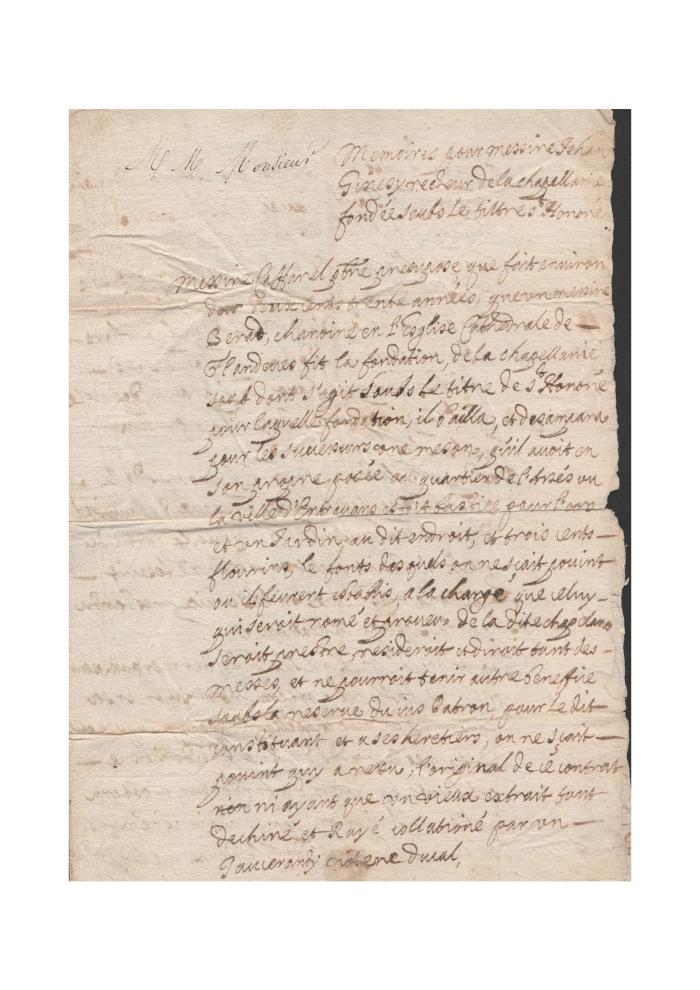 M M Monsieur
Memoires pour messire Jehan
Ginesy recteur de la chapellanie
fondée soubs le tiltre st Honoré
messire Caffarel ptre presupose que fait environ
deux cents trente années, que un messire
Berad, chanoine en l'Esglise Cathedrale de
Glandeves fit la fondation, de la chapellanie
dont s'agit soubs le titre de st Honoré
pour laquelle fondation, il bailla, et desampara
pour les successeurs une meson, qu'il avoit en
son propre posée au quartier de
la ville d'Entrevaux
et un Jardin au dit endroit, et trois cents
flourins, le fonts desquels on ne sçait pouint
ou ils feurent establis, a la charge, que celuy
qui seroit nomé et proveu de la dite chapelanie
seroit prebtre, resideroit et diroit tant des
messes, et ne pourroit tenir autre beneffice
soubs la reserve du jus Patron, pour le dit
constituant et a ses heretiers, on ne sçait
pouint quy a receu, l'original de ce contrat
ni ayant que un vieux extrait tout
dechiré et Rayé collationé par un
ducal,